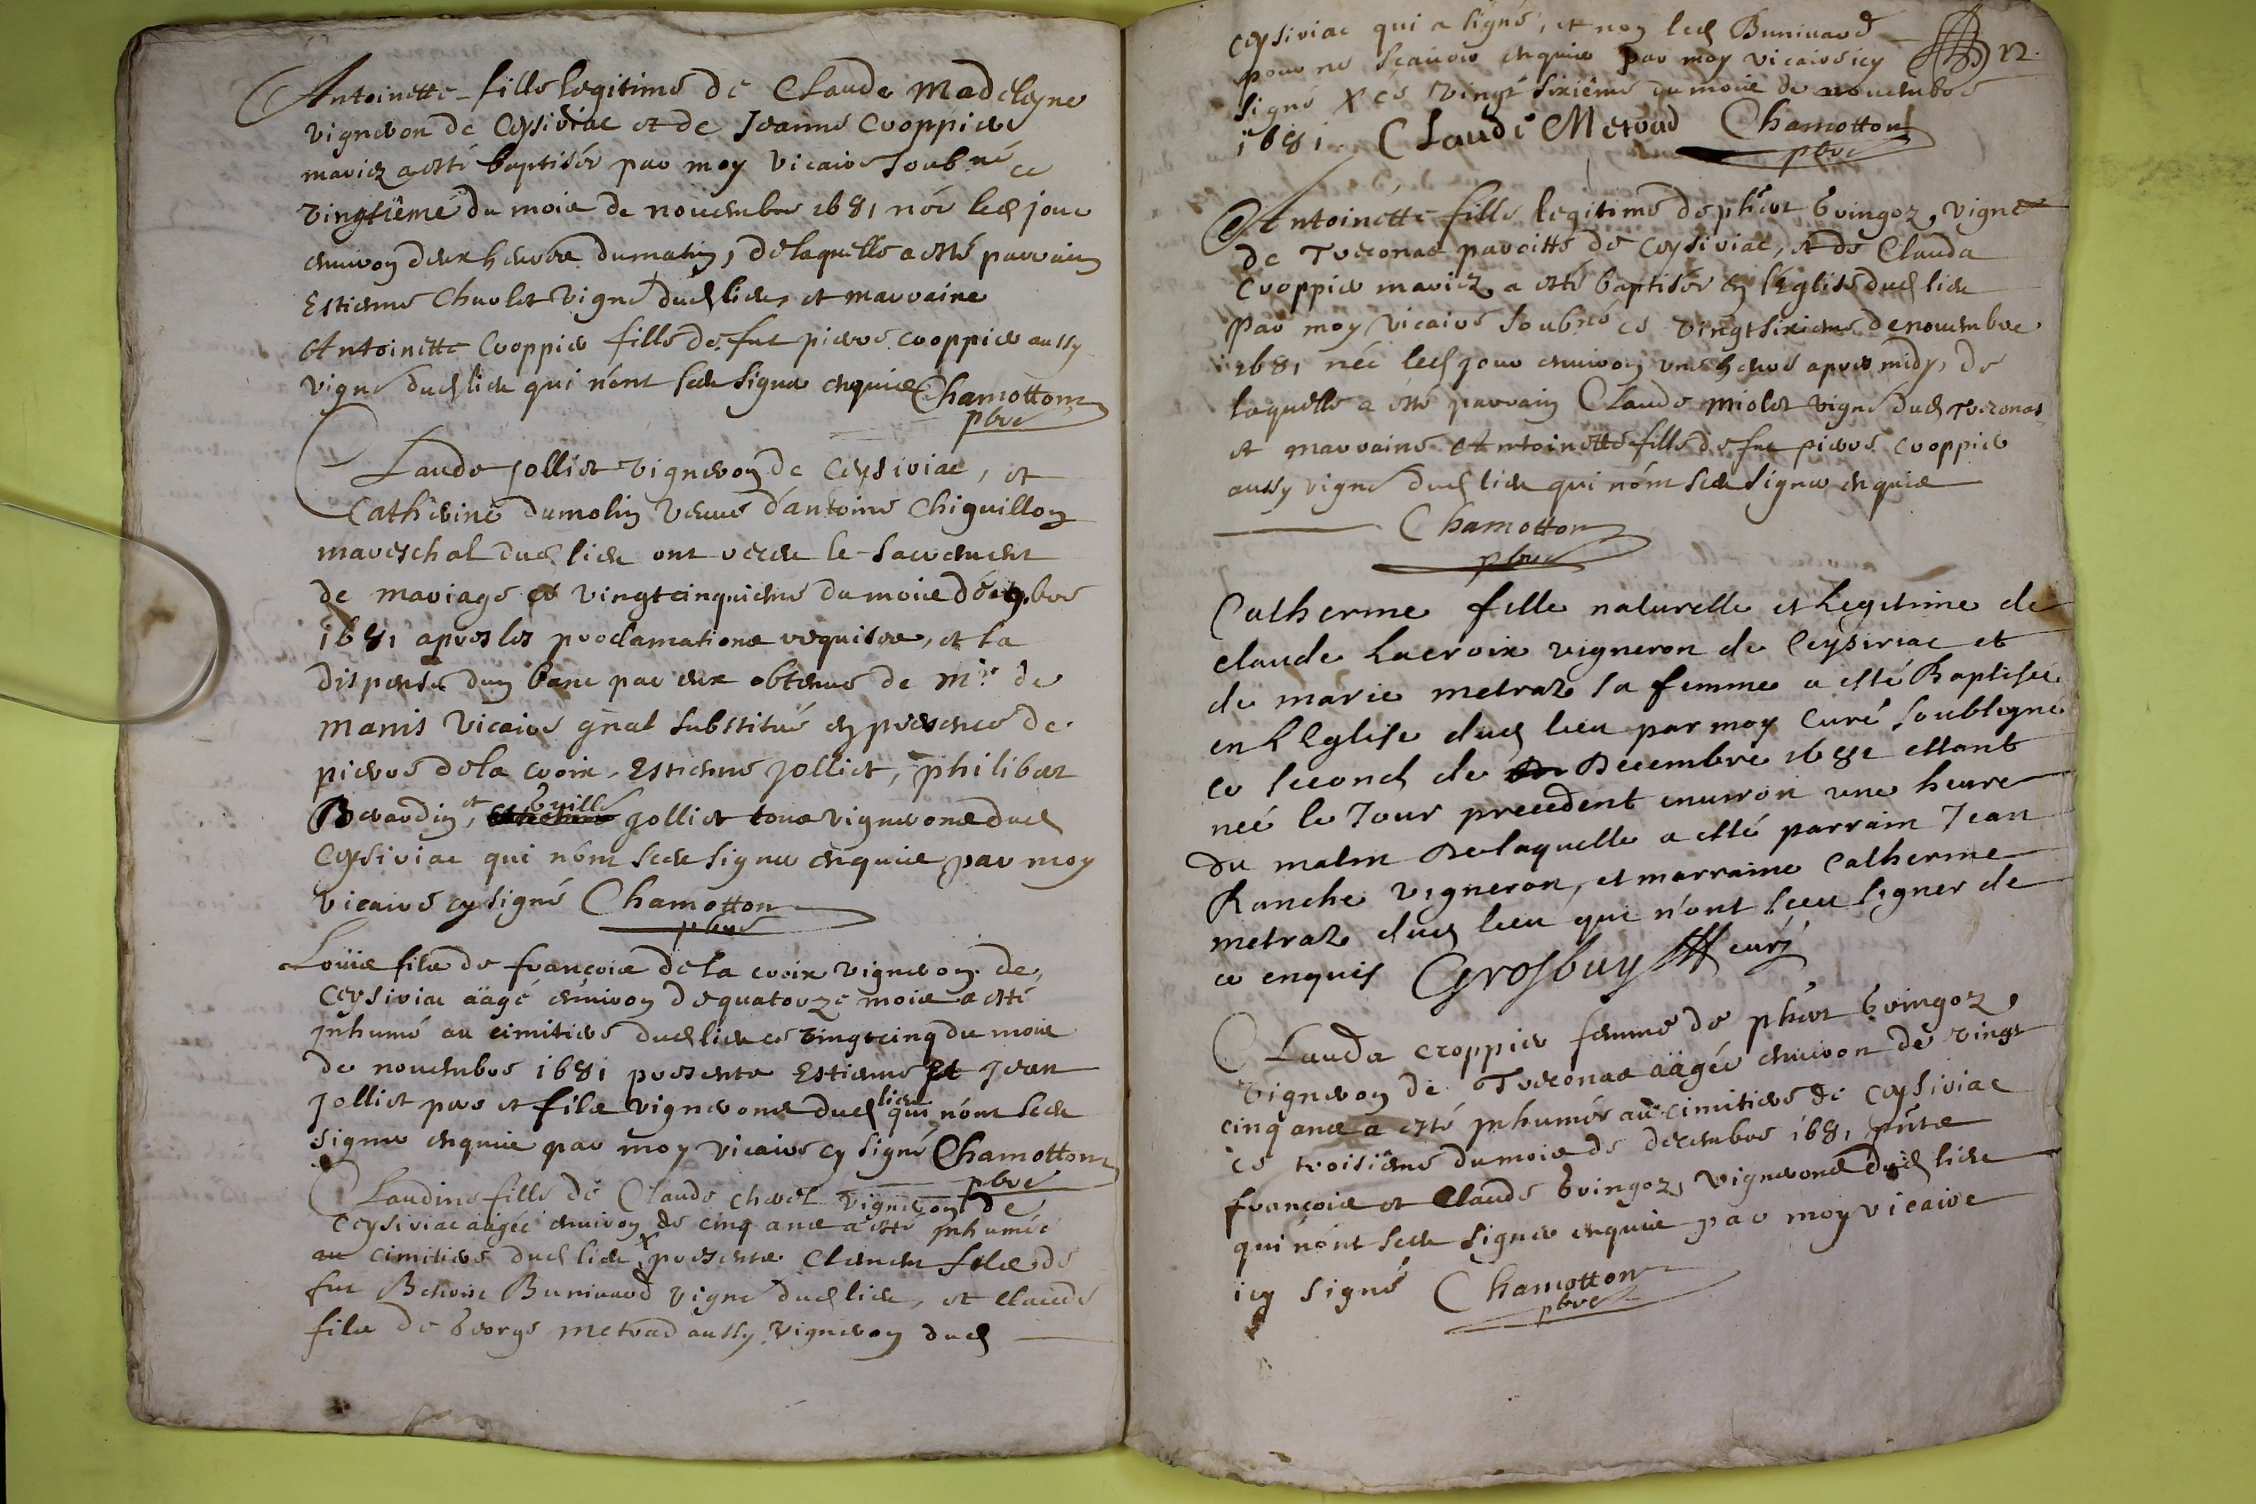 Antoinette fille legitime de Claude Madeleyne
vigneron de Ceysiriac et de Jeanne Croppier
mariez a esté baptisée par moy vicaire soubné ce
vingtiême du mois de novembre 1681 née led jour
environ deux heures du matin, de laquelle a esté parrain
Estienne Charlet vigne dud lieu, et marraine
Antoinette Croppier fille de fut pierre croppier aussy
vigne dud lieu qui n'ont sceu signer enquis Chamotton
pbre
Claude Jolliet vigneron de Ceysiriac, et
Catherine dumolin veuve d'antoine Chiguillon
mareschal dud lieu ont receu le sacrement
de mariage ce vingtcinquieme du moïs de 9bre
1681 apres les proclamations requises, et la
dispense d'un banc par eux obtenue de Mr de
Manis vicaire gñal substitué en presence de
pierre dela croix, Estienne Jolliet, philibert
Berardin, et Guille Jolliet tous vignerons dud
Ceysiriac qui n'ont sceu signer enquis par moy
vicaire cy signé Chamotton
pbre
Louis fils de françois dela croix vigneron de
Ceysiriac aägé environ de quatorze mois a esté
Jnhumé au cimitiere dud lieu ce vingtcinq du mois
de novembre 1681 presents Estienne Et Jean
Jolliet pere et fils vignerons dud lieu qui n'ont sceu
signer enquis par moy vicaire cy signé Chamotton
pbre
Claudine fille de Claude vigneron de
Ceysiriac aägée environ de cinq ans a esté Jnhumée
au cimitiere dud lieu x presents Clement fils de
fut Benoist Bunivard vigne dud lieu, et claude
fils de George metrad aussy vigneron dud
Ceysiriac qui a signé, et non led Bunivard
pour ne sçavoir enquis par moy vicaire icy 12.
signé x ce vingt sixiême du mois de novembre
1681. Claude Metrad Chamotton
pbre
Antoinette fille legitime de phert Gringoz, vigne
de Treconas paroisse de ceysiriac, et de Clauda
Croppier mariez a esté baptisée en l'Eglise dud lieu
Par moy vicaire soubné ce vingtsixieme de novembre
1681 née led jour environ une heure apres midy, de
laquelle a esté parrain Claude miolet vigne dud Treconas
et marraine Antoinette fille de fut pierre croppier
aussy vigne dud lieu qui n'ont sceu signer enquis
Chamotton
pbre
Catherine fille naturelle et Legitime de
claude Lacroix vigneron de Ceysiriac et
de marie metraz sa femme a esté Baptisée
en LEglise dud lieu par moy Curé soubsigne
ce second de Decembre 1681 estant
neé le Jour precedent environ une heure
du matin Delaquelle a esté parrain Jean
Ranche vigneron, et marraine Catherine
metraz dud lieu qui n'ont sceu signer de
ce enquis Grosbuy curé
Clauda croppier femme de phert Gringoz,
vigneron de Treconas aägée environ de vingt
cinq ans a esté Jnhumée au cimitiere de Ceysiriac
ce troisiême du mois de decembre 1681 pñts
françois et Claude Gringoz, vignerons dud lieu
qui n'ont sceu signer enquis par moy vicaire
icy signé Chamotton
pbre